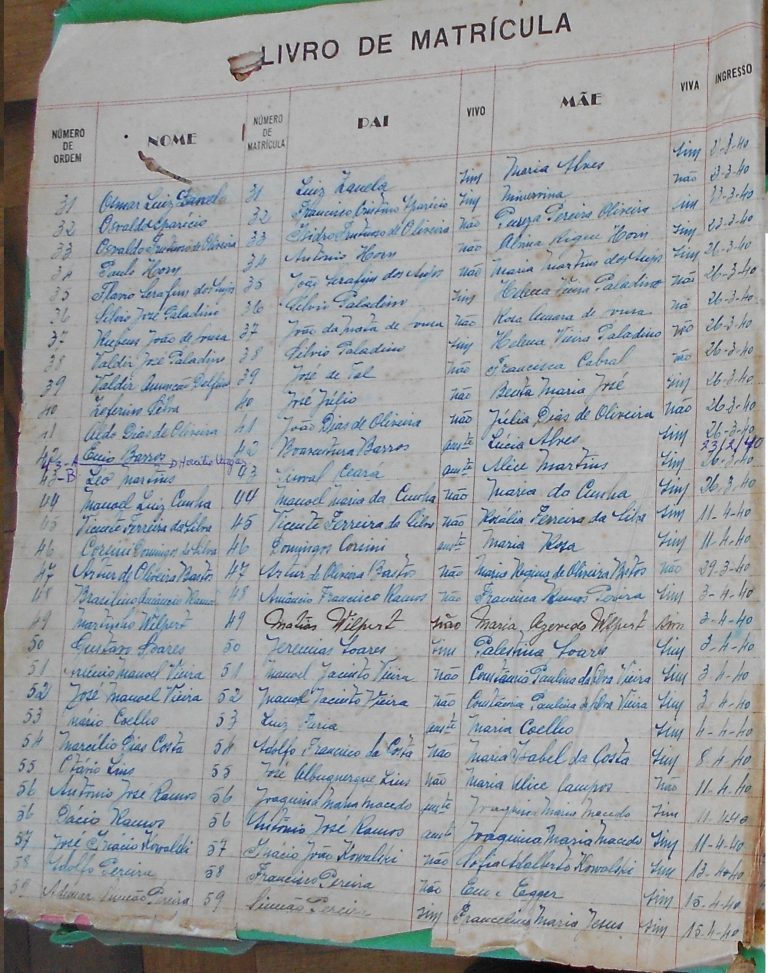 LIVRO DE MATRÍCULA
NÚMERO DE ORDEM NOME NÚMERO DE MATRÍCULA PAI VIVO MÃE VIVA INGRESSO
31 Osmar Luiz Zanela 31 Luiz Zanela Sim Maria Alves Sim 2-3-40
32 Osvaldo Aparício 32 Francisco Cristino Aparício Sim Minervina não 23-3-40
33 Osvaldo de Oliveira 33 Isidro de Oliveira não Pereira Oliveira Sim 23-3-40
34 Paulo Horn 34 Antônio Horn não Horn Sim 23-3-40
35 Flavio Serafim dos Anjos 35 João Serafim dos Anjos não Maria Martins dos Anjos Sim 26-3-40
36 Silvio José Paladino 36 Silvio Paladino Sim Helena Vieira Paladino não 26-3-40
37 Rubens João de Sousa 37 João da de Sousa não Rosa de Sousa não 26-3-40
38 Valdir José Paladino 38 Silvio Paladino Sim Helena Vieira Paladino não 26-3-40
39 Valdir Assunção Delfino 39 José de Tal não Francisca Cabral não 26-3-40
40 Zeferino Silva 40 José Júlio não Benta Maria José Sim 26-3-40
41 Aldo Dias de Oliveira 41 João Dias de Oliveira não Júlia Dias de Oliveira não 26-3-40
42 Enio Barros 42 Boaventura Barros aust Lúcia Alves Sim 26-3-40
43-A D Hercílio Vargas 23/2/40
43-B Léo Martins 43 Ceará aust Alice Martins Sim 26-3-40
44 Manoel Luiz Cunha 44 Manoel Maria da Cunha não Maria da Cunha Sim 26-3-40
45 Vicente Ferreira da Silva 45 Vicente Ferreira da Silva não Rosália Ferreira da Silva Sim 11-4-40
46 Corsini Domingos da Silva 46 Domingos Corsini aust Maria Rosa Sim 11-4-40
47 Artur de Oliveira Bastos 47 Artur de Oliveira Bastos não Maria Regina de Oliveira Bastos não 29-3-40
48 Brasilino Amâncio Ramos 48 Amâncio Francisco Ramos não Francisca Ramos Pereira Sim 3-4-40
49 Marinho Wilpert 49 Matias Wilpert não Maria Azevedo Wilpert Sim 3-4-40
50 Gustavo Soares 50 Jeremias Soares Sim Palestina Soares Sim 3-4-40
51 Manoel Vieira 51 Manoel Jacinto Vieira não Constância Paulina da Silva Vieira Sim 3-4-40
52 José Manoel Vieira 52 Manoel Jacinto Vieira não Constância Paulina da Silva Vieira Sim 3-4-40
53 Mário Coelho 53 Luiz Faria aust Maria Coelho Sim 4-4-40
54 Marcílio Dias Costa 54 Adolfo Francisco da Costa não Maria Isabel da Costa Sim 8-4-40
55 Otávio Lins 55 José Albuquerque Lins não Maria Alice Campos não 11-4-40
56 Antônio José Ramos 56 Joaquina Maria Macedo aust Joaquina Maria Macedo Sim 11-4-40
56 Dácio Ramos 56 Antônio José Ramos aust Joaquina Maria Macedo Sim 11-4-40
57 José Inácio Kowalski 57 Inácio João Kowalski não Sofia Adalberto Kowalski Sim 13-4-40
58 Adolfo Pereira 58 Francisco Pereira não Ema Egger Sim 15-4-40
59 Ademar Simeão Pereira 59 Simeão Pereira Sim Francelina Maria Jesus Sim 15-4-40